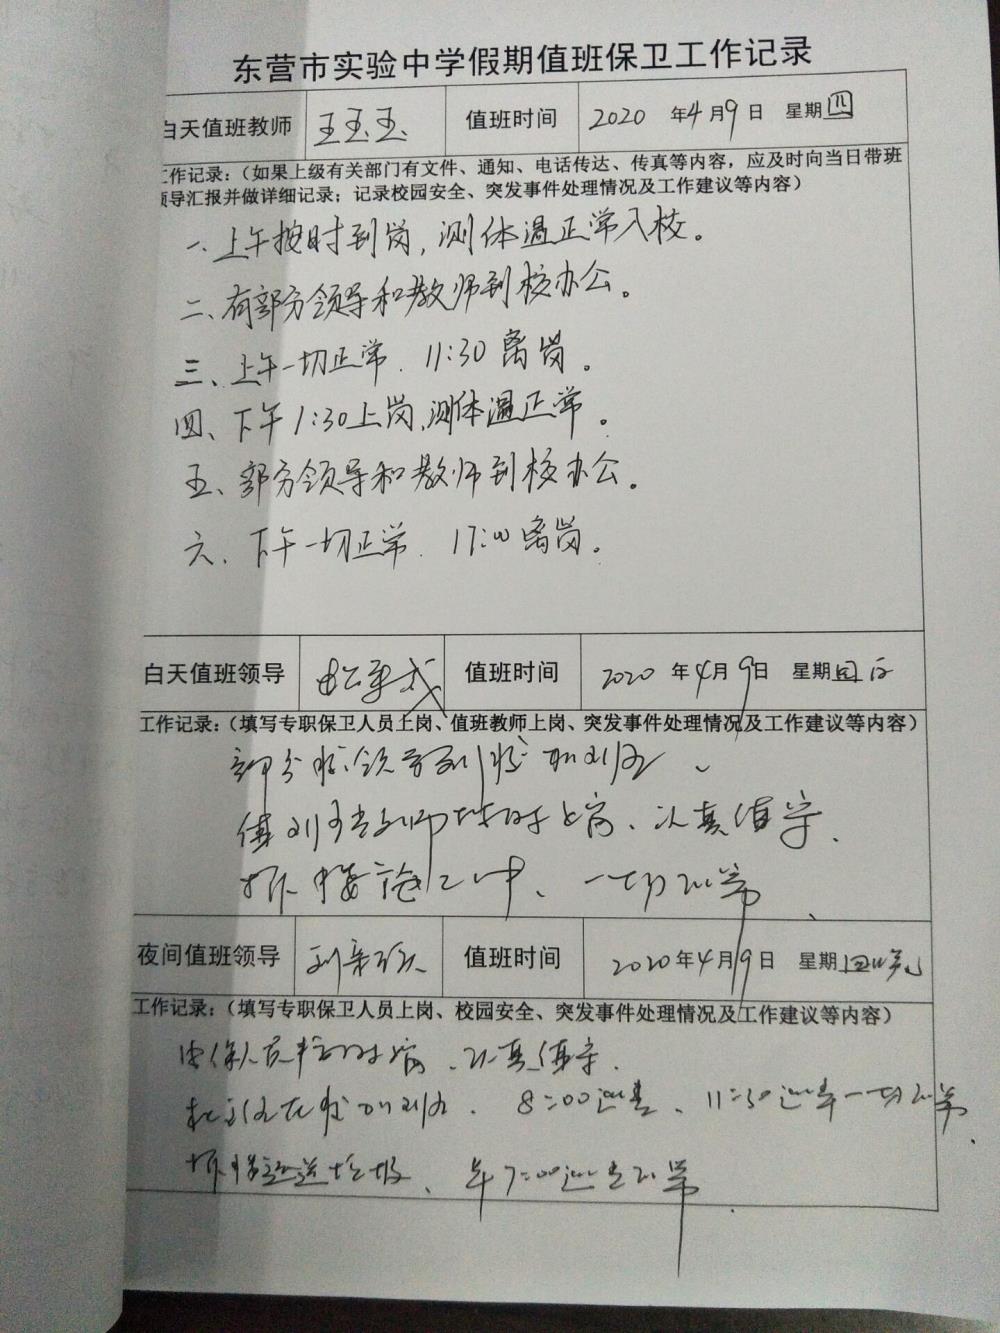 东营市实验中学假期值班保卫工作记录
白天值班教师 王玉玉 值班时间 2020 年4月9日 星期四
工作记录：（如果上级有关部门有文件、通知、电话传达、传真等内容，应及时向当日带班
领导汇报并做详细记录；记录校园安全、突发事件处理情况及工作建议等内容）
一、上午按时到岗，测体温正常入校。
二、有部分领导和教师到校办公。
三、上午一切正常．11:30离岗。
四、下午1:30上岗，测体温正常。
五、部分领导和教师到校办公。
六、下午一切正常．17:00离岗。
白天值班领导 值班时间 2020 年4月9日 星期四
工作记录：（填写专职保卫人员上岗、值班教师上岗、突发事件处理情况及工作建议等内容）
部分校领导到校
值班教师按时上岗、认真值守．
一切正常、
夜间值班领导 值班时间 2020年4月9日 星期四
工作记录：（填写专职保卫人员上岗、校园安全、突发事件处理情况及工作建议等内容）
上岗、认真值守．
8:00巡查、11:30巡查一切正常．
7:00巡查正常．